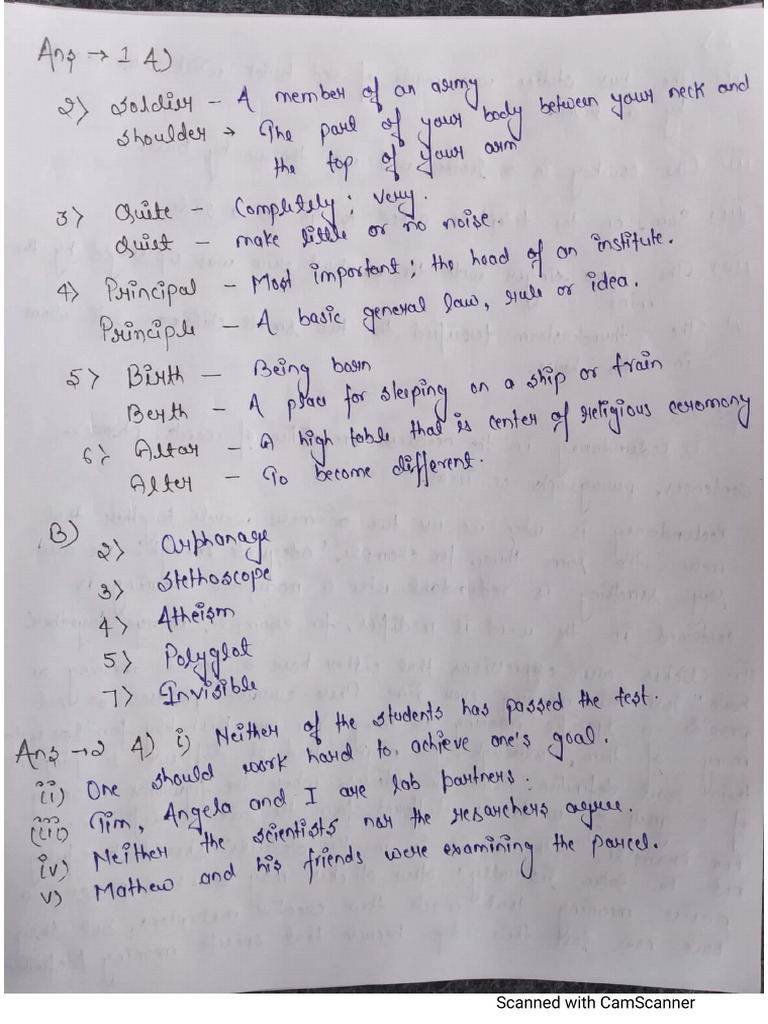 Ans → 1 A)
2) Soldier – A member of an army
Shoulder → The part of your body between your neck and
the top of your arm
3) Quite – Completely; very.
Quiet – make little or no noise.
4) Principal – Most important; the head of an institute.
Principle – A basic general law, rule or idea.
5) Birth – Being born
Berth – A place for sleeping on a ship or train
6) Altar – A high table that is center of religious ceremony
Alter – To become different.
B)
2) Orphanage
3) Stethoscope
4) Atheism
5) Polyglot
7) Invisible
Ans → 2 A) i) Neither of the students has passed the test.
(ii) One should work hard to achieve one's goal.
(iii) Tim, Angela and I are lab partners.
iv) Neither the scientists nor the researchers agree.
v) Mathew and his friends were examining the parcel.
Scanned with CamScanner